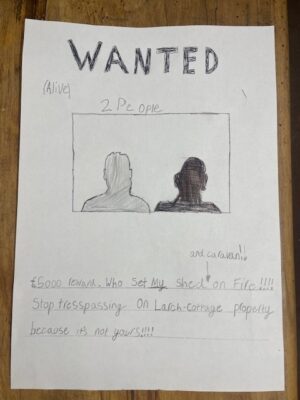 WANTED
(Alive)
2 People
and caravan!!
£5000 reward. Who Set My shed on Fire!!!!
Stop tresspassing On Larch-cottage property
because it's not yours!!!!